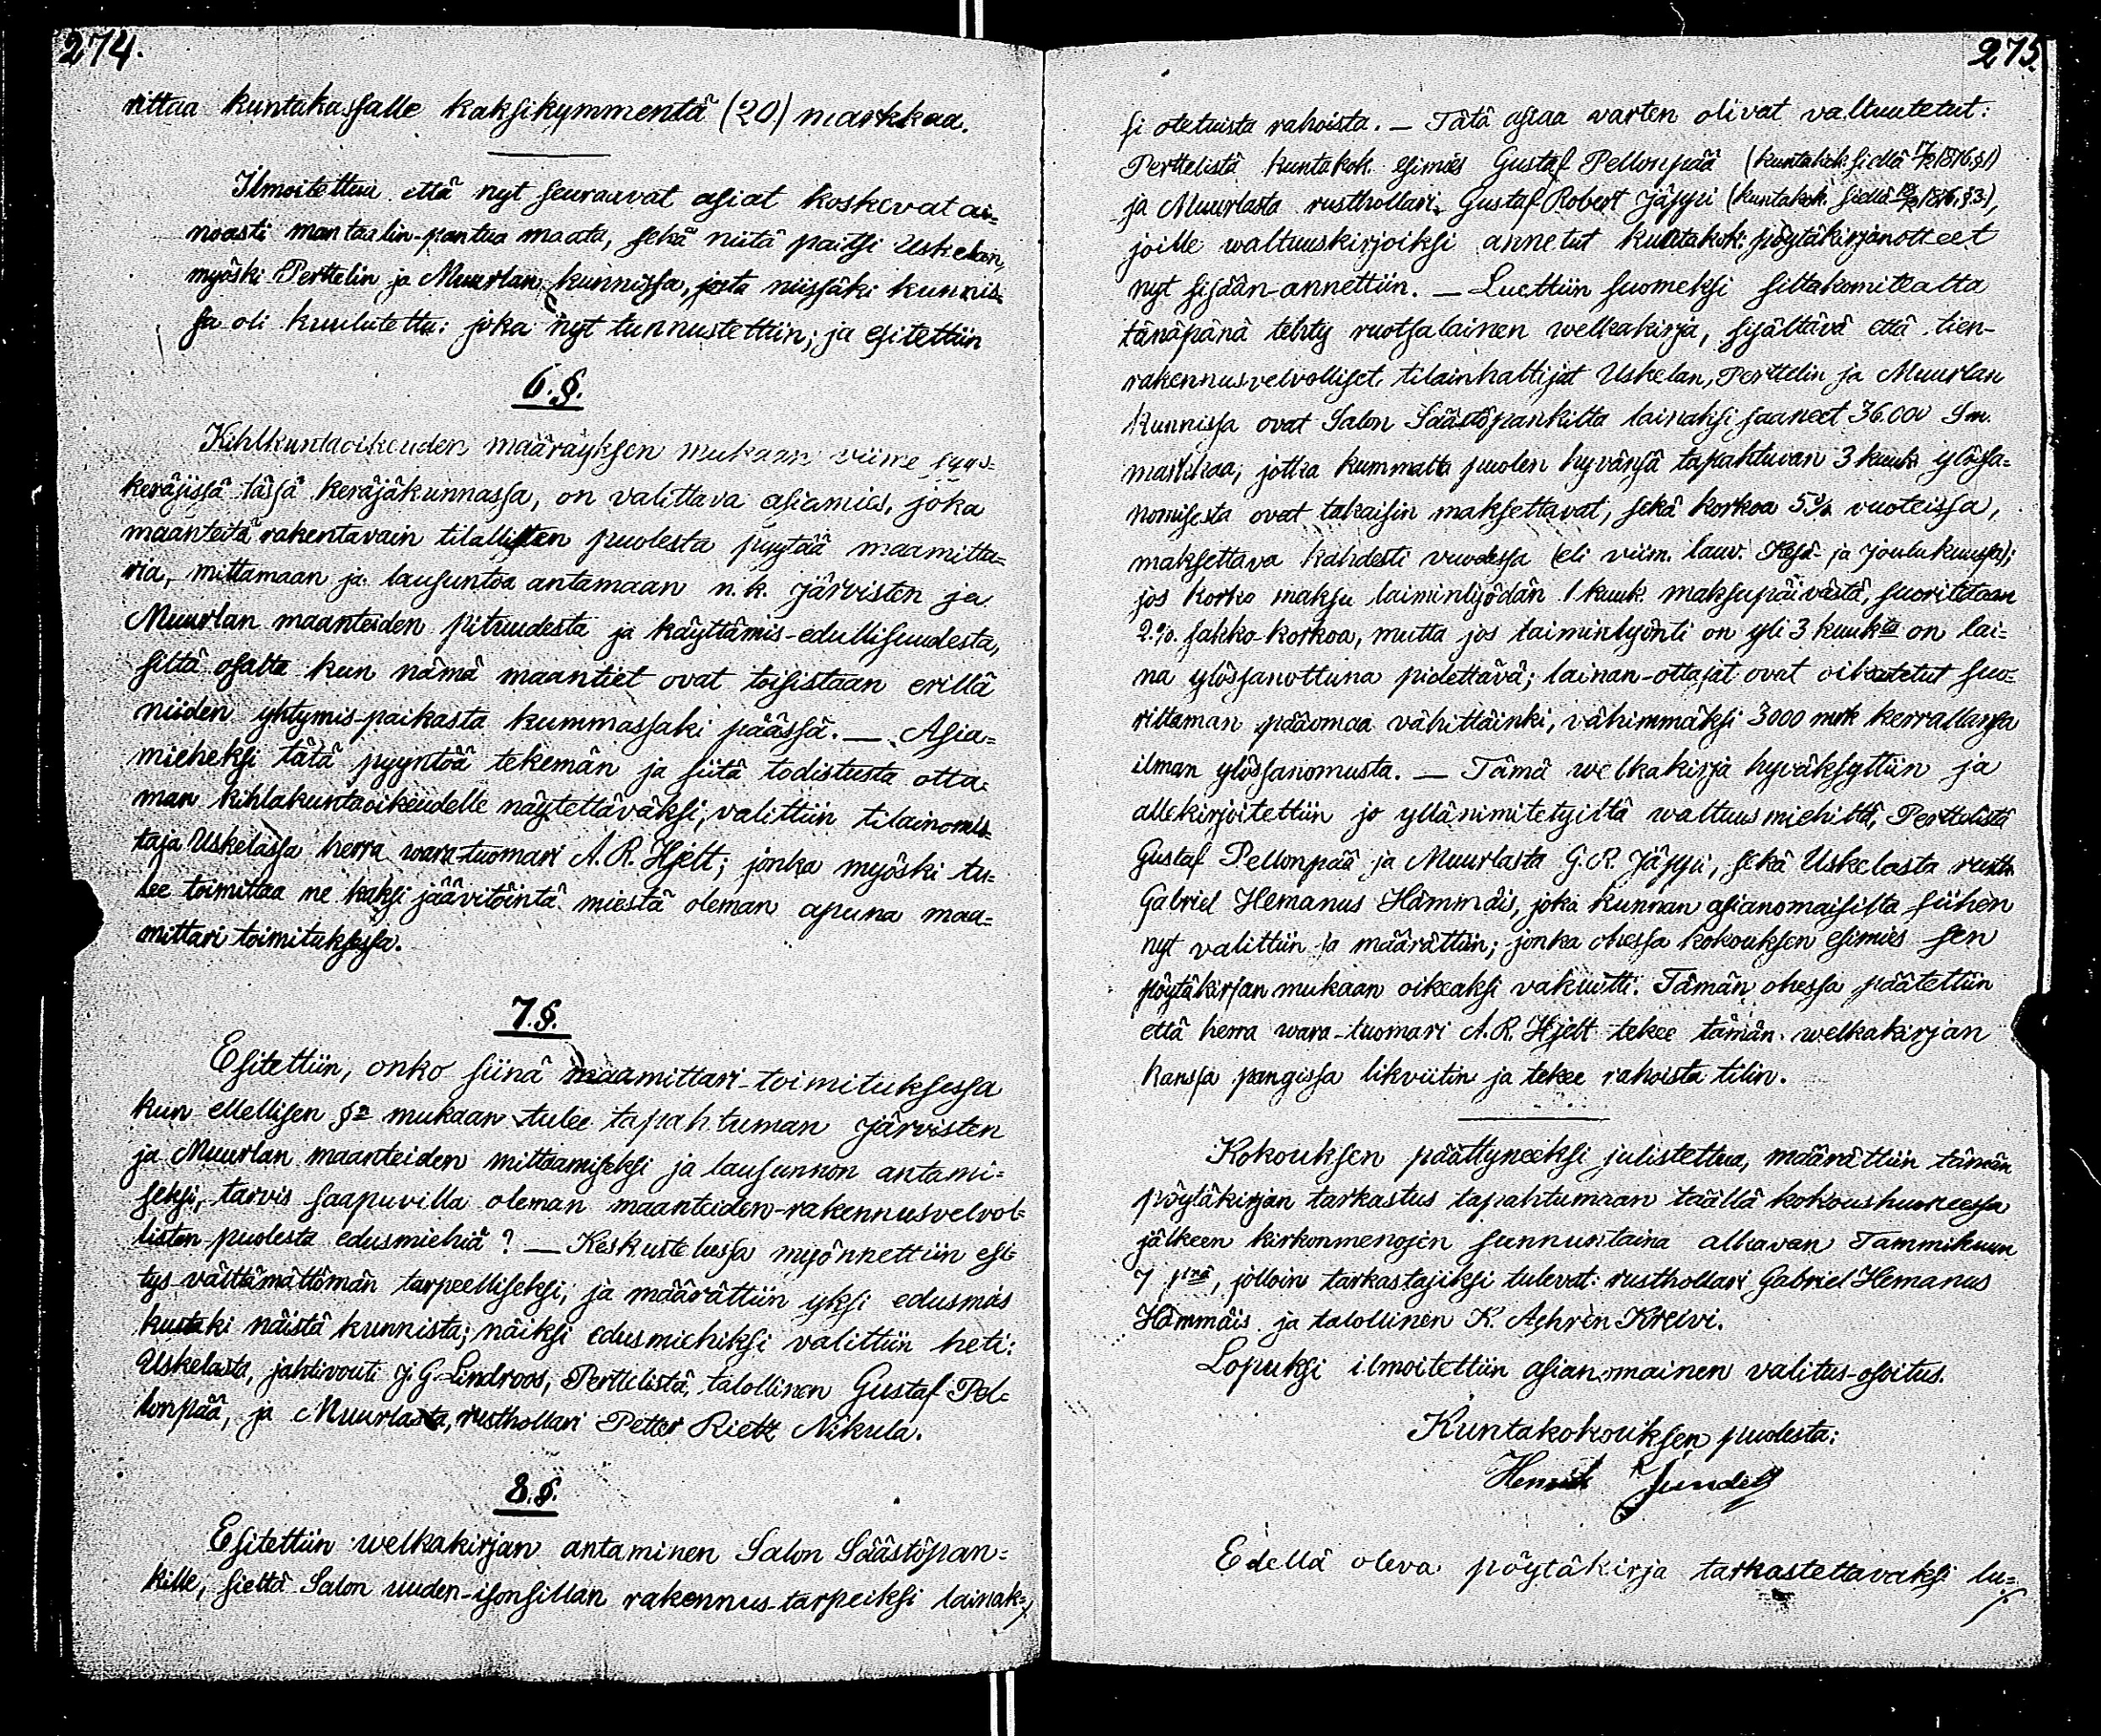 274.
rittaa kuntakassalle kaksikymmentä (20) markkaa.
Ilmoitettua että nyt seuraavat asiat koskevat ai=
noasti mantaalin-pantua maata, sekä niitä paitsi Uskelan,
myöski Perttelin ja Muurlan kunnissa, josta niissäki kunnis=
sa oli kuulutettu: joka nyt tunnustettiin; ja esitettiin
6.§.
Kihlkuntaoikeuden määräyksen mukaan viime syys=
keräjissä tässä keräjäkunnassa, on valittava asiamies, joka
maanteitä rakentavain tilallisten puolesta pyytää maamitta=
ria, mittamaan ja lausuntoa antamaan n.k. Järvisten ja
Muurlan maanteiden pituudesta ja käyttämis-edullisuudesta,
siltä osalta kun nämä maantiet ovat toisistaan erillä
niiden yhtymis-paikasta kummassaki päässä. — Asia=
mieheksi tätä pyyntöä tekemän ja siitä todistusta otta=
man kihlakuntaoikeudelle näytettäväksi, valittiin tilainomis=
taja Uskelassa herra wara-tuomari A. R. Hjelt; jonka myöski tu=
lee toimittaa ne kaksi jäävitöintä miestä oleman apuna maa=
mittari toimituksessa.
7.§.
Esitettiin, onko siinä maamittari-toimituksessa
kun ellellisen §n mukaan tulee tapahtuman Järvisten
ja Muurlan maanteiden mittaamiseksi ja lausunnon antami=
seksi, tarvis saapuvilla oleman maanteiden-rakennusvelvol=
listen puolesta edusmiehiä? — Keskustelussa myönnettiin esi=
tys välttämättömän tarpeelliseksi, ja määrättiin yksi edusmies
kustaki näistä kunnista; näiksi edusmiehiksi valittiin heti:
Uskelasta, jahtivouti J. G. Lindroos, Perttelistä, talollinen Gustaf Pel=
lonpää, ja Muurlasta, rusthollari Petter Rietz Nikula.
8.§.
Esitettiin welkakirjan antaminen Salon Säästöpan=
kille, sieltä Salon uuden-isonsillan rakennus-tarpeiksi lainak=
275.
si otetuista rahoista. — Tätä asiaa warten olivat valtuutetut:
Perttelistä kuntakok. esimies Gustaf Pellonpää (kuntakok siellä 1876 §1)
ja Muurlasta rusthollari Gustaf Robert Jäppi (kuntakok. siellä 1876, §3),
joille waltuuskirjoiksi annetut kuntakok: pöytäkirjanotteet
nyt sisään-annettiin. — Luettiin suomeksi siltakomitealta
tänäpänä tehty ruotsalainen welkakirja, sisältävä että tien-
rakennusvelvolliset tilainhaltijat Uskelan, Perttelin ja Muurlan
kunnissa ovat Salon Säästöpankilta lainaksi saaneet 36.000 Sm.
markkaa, jotka kummalta puolen hyvänsä tapahtuvan 3 kuuk ylössa=
nomisesta ovat takaisin maksettavat, sekä korkoa 5% vuoteissa,
maksettava kahdesti vuodessa (eli viim. lauv. Kesä- ja Joulukuussa);
jos korko maksu laiminlyödän 1 kuuk. maksupäivästä, suoritetaan
2.%. sakko-korkoa, mutta jos laiminlyönti on yli 3 kuukta on lai=
na ylössanottuna pidettävä; lainan-ottajat ovat oikeutetut suo=
rittaman pääomaa vähittäinki, vähimmäksi 3000 mrk kerrallansa
ilman ylössanomusta. — Tämä welkakirja hyväksyttiin ja
allekirjoitettiin jo yllänimitetyiltä waltuusmiehiltä, Perttelistä
Gustaf Pellonpää ja Muurlasta G. R. Jäppi, sekä Uskelasta rusth.
Gabriel Hemanus Hämmäis, joka kunnan asianomaisilta siihen
nyt valittiin ja määrättiin; jonka ohessa kokouksen esimies sen
pöytäkirjan mukaan oikeaksi vakuutti. Tämän ohessa päätettiin
että herra wara-tuomari A. R. Hjelt tekee tämän welkakirjan
kanssa pangissa likviitin ja tekee rahoista tilin.
Kokouksen päättyneeksi julistettua, määrättiin tämän
pöytäkirjan tarkastus tapahtumaan täällä kokoushuoneessa
jälkeen kirkonmenojen sunnuntaina alkavan Tammikuun
7 pnä, jolloin tarkastajiksi tulevat: rusthollari Gabriel Hemanus
Hämmäis ja talollinen K. Krelvi.
Lopuksi ilmoitettiin asianomainen valitus-osoitus.
Kuntakokouksen puolesta:
Henrik
Edellä oleva pöytäkirja tarkastettavaksi lu=